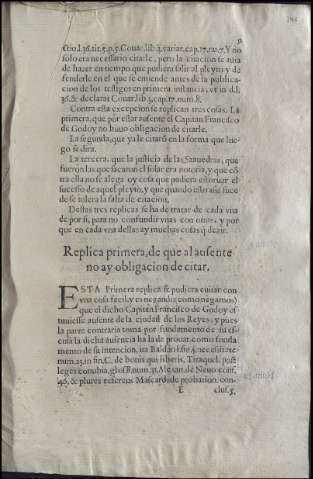 ctio.l.36.tit.5.p.5. Couar.lib.3.variar.cap.17.nu.7. Y no
solo era necessario citarle, pero la citacion se auia
de hazer en tiempo que pudiera salir al pleyto y de
fenderle en el que se entiende antes de la publica-
cion de los testigos en primera instancia, vt in d.l.
36. & declarat Couar.lib.3.cap.17.num.8.
Contra esta excepcion se replican tres cosas. La
primera, que por estar ausente el Capitan Francisco
de Godoy no huuo obligacion de citarle.
La segunda, que ya le citarõ en la forma que lue-
go se dira.
La tercera, que la justicia de las Saauedras, que
fueron las que sacaron el solar era notoria, y que cõ-
tra esta no se alega oy cosa que pudiera estoruar el
sucesso de aquel pleyto, y que quando esto assi suce
de se tolera la falta de citacion.
Destas tres replicas se ha de tratar de cada vna
de por si, para no confundir vnas con otras, y por
que en cada vna dellas ay muchas cosas q̃ dezir.
Replica primera, de que al ausente
no ay obligacion de citar.
ESTA Primera replica se pudiera euitar con
vna cosa facil, y es negando (como negamos)
que el dicho Capitan Francisco de Godoy es-
tuuiesse ausente de la ciudad de los Reyes, y pues
la parte contraria toma por fundamento de su es-
cusa la dicha ausencia ha la de prouar, como funda
mento de su intencion,
num.25. in fin. C. de bonis quæ liberis. Tiraquel. post
leges conubia, glos.8.
46. & plures referens Mascard. de probation. con-
E clus.5.